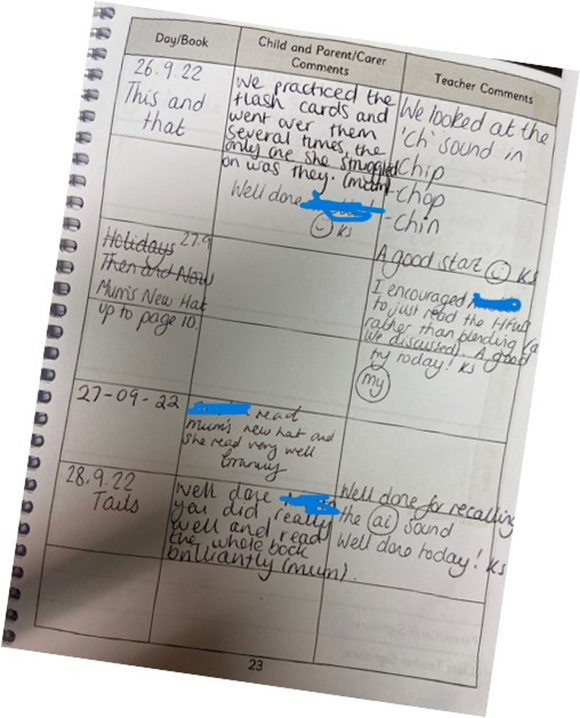 Day/Book
Child and Parent/Carer
Comments
Teacher Comments
26.9.22
This and
that
We practiced the
flash cards and
went over them
several times, the
only one she struggled
on was they. (mum)
Well done
KS
We looked at the
'ch' sound in
-chip
-chop
-chin
A good start KS
Holidays 27.9
Then and Now
Mum's New Hat
up to page 10
I encouraged
to just read the HFWs
rather than blending (as
we discussed). A good
try today! KS
my
27-09-22
read
mum's new hat and
she read very well
Granny
28.9.22
Tails
Well done
you did really
well and read
the whole book
brilliantly (mum).
Well done for recalling
the ai sound
Well done today! KS
23